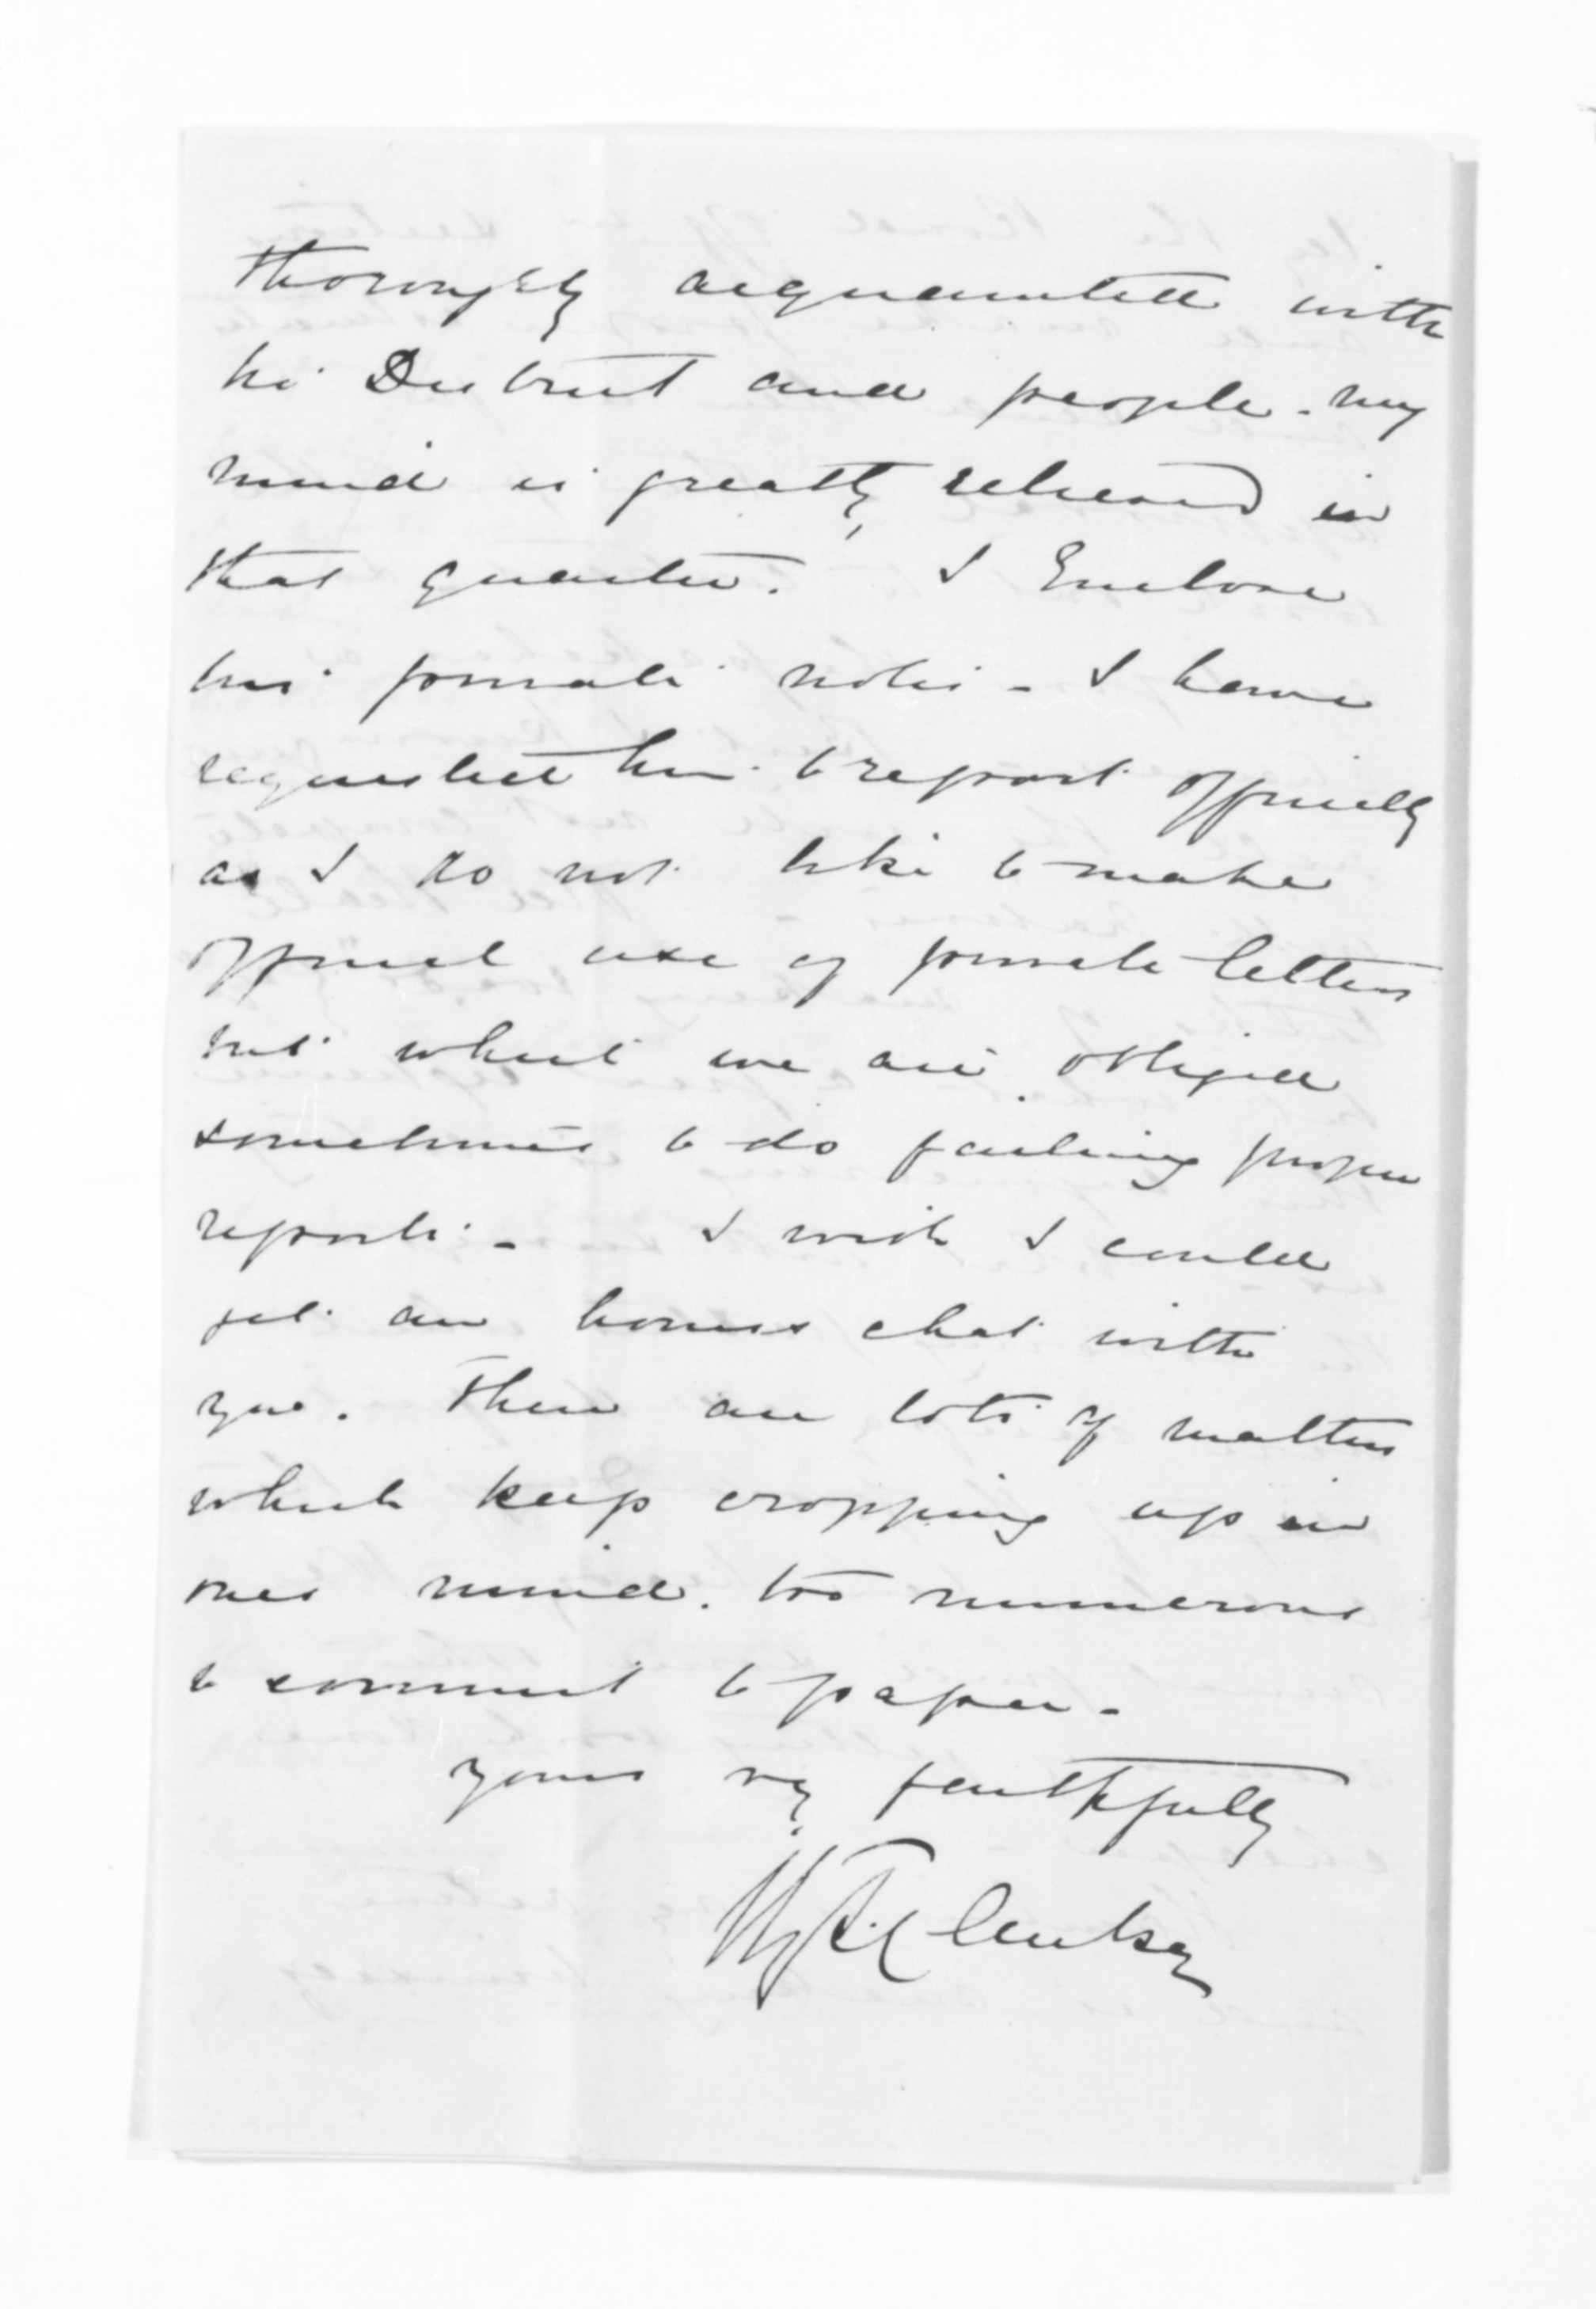 thoroughly acquainted with
his District and people - my
mind is greatly relieved in
that quarter. I Enclose
his private notes - I have
requested him to report officially
as I do not like to make
official use of private letters
but what we are obliged
sometimes to do failing proper
reports - I wish I could
get an hours chat with
you. There are lots of matters
which keep cropping up in
ones mind. too numerous
to commit to paper -
yours vy faithfully
H. T. Clarke